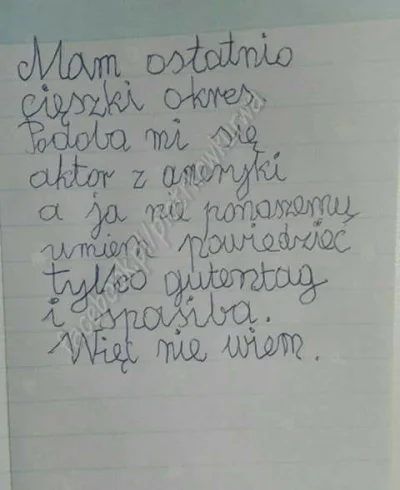 Mam ostatnio
cięszki okres.
Podoba mi się
aktor z ameryki
a ja nie ponaszemu
umiem powiedzieć
tylko gutentag
i spasiba.
Więc nie wiem.